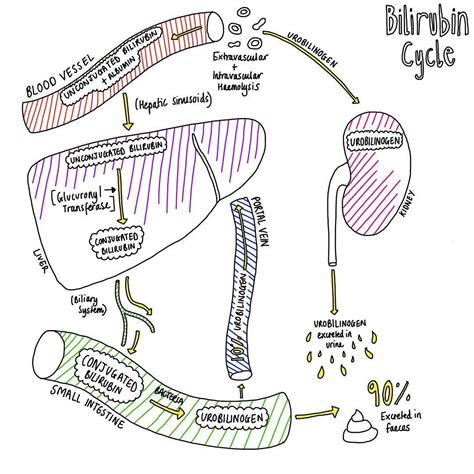 Bilirubin
Cycle
BLOOD VESSEL
UNCONJUGATED BILIRUBIN
+ ALBUMIN
Extravascular
+
Intravascular
Haemolysis
UROBILINOGEN
(Hepatic sinusoids)
UNCONJUGATED BILIRUBIN
[Glucuronyl
Transferase]
CONJUGATED
BILIRUBIN
LIVER
UROBILINOGEN
KIDNEY
PORTAL VEIN
UROBILINOGEN
(Biliary
System)
UROBILINOGEN
excreted in
urine
CONJUGATED
BILIRUBIN
BACTERIA
UROBILINOGEN
SMALL INTESTINE
90%
Excreted in
faeces